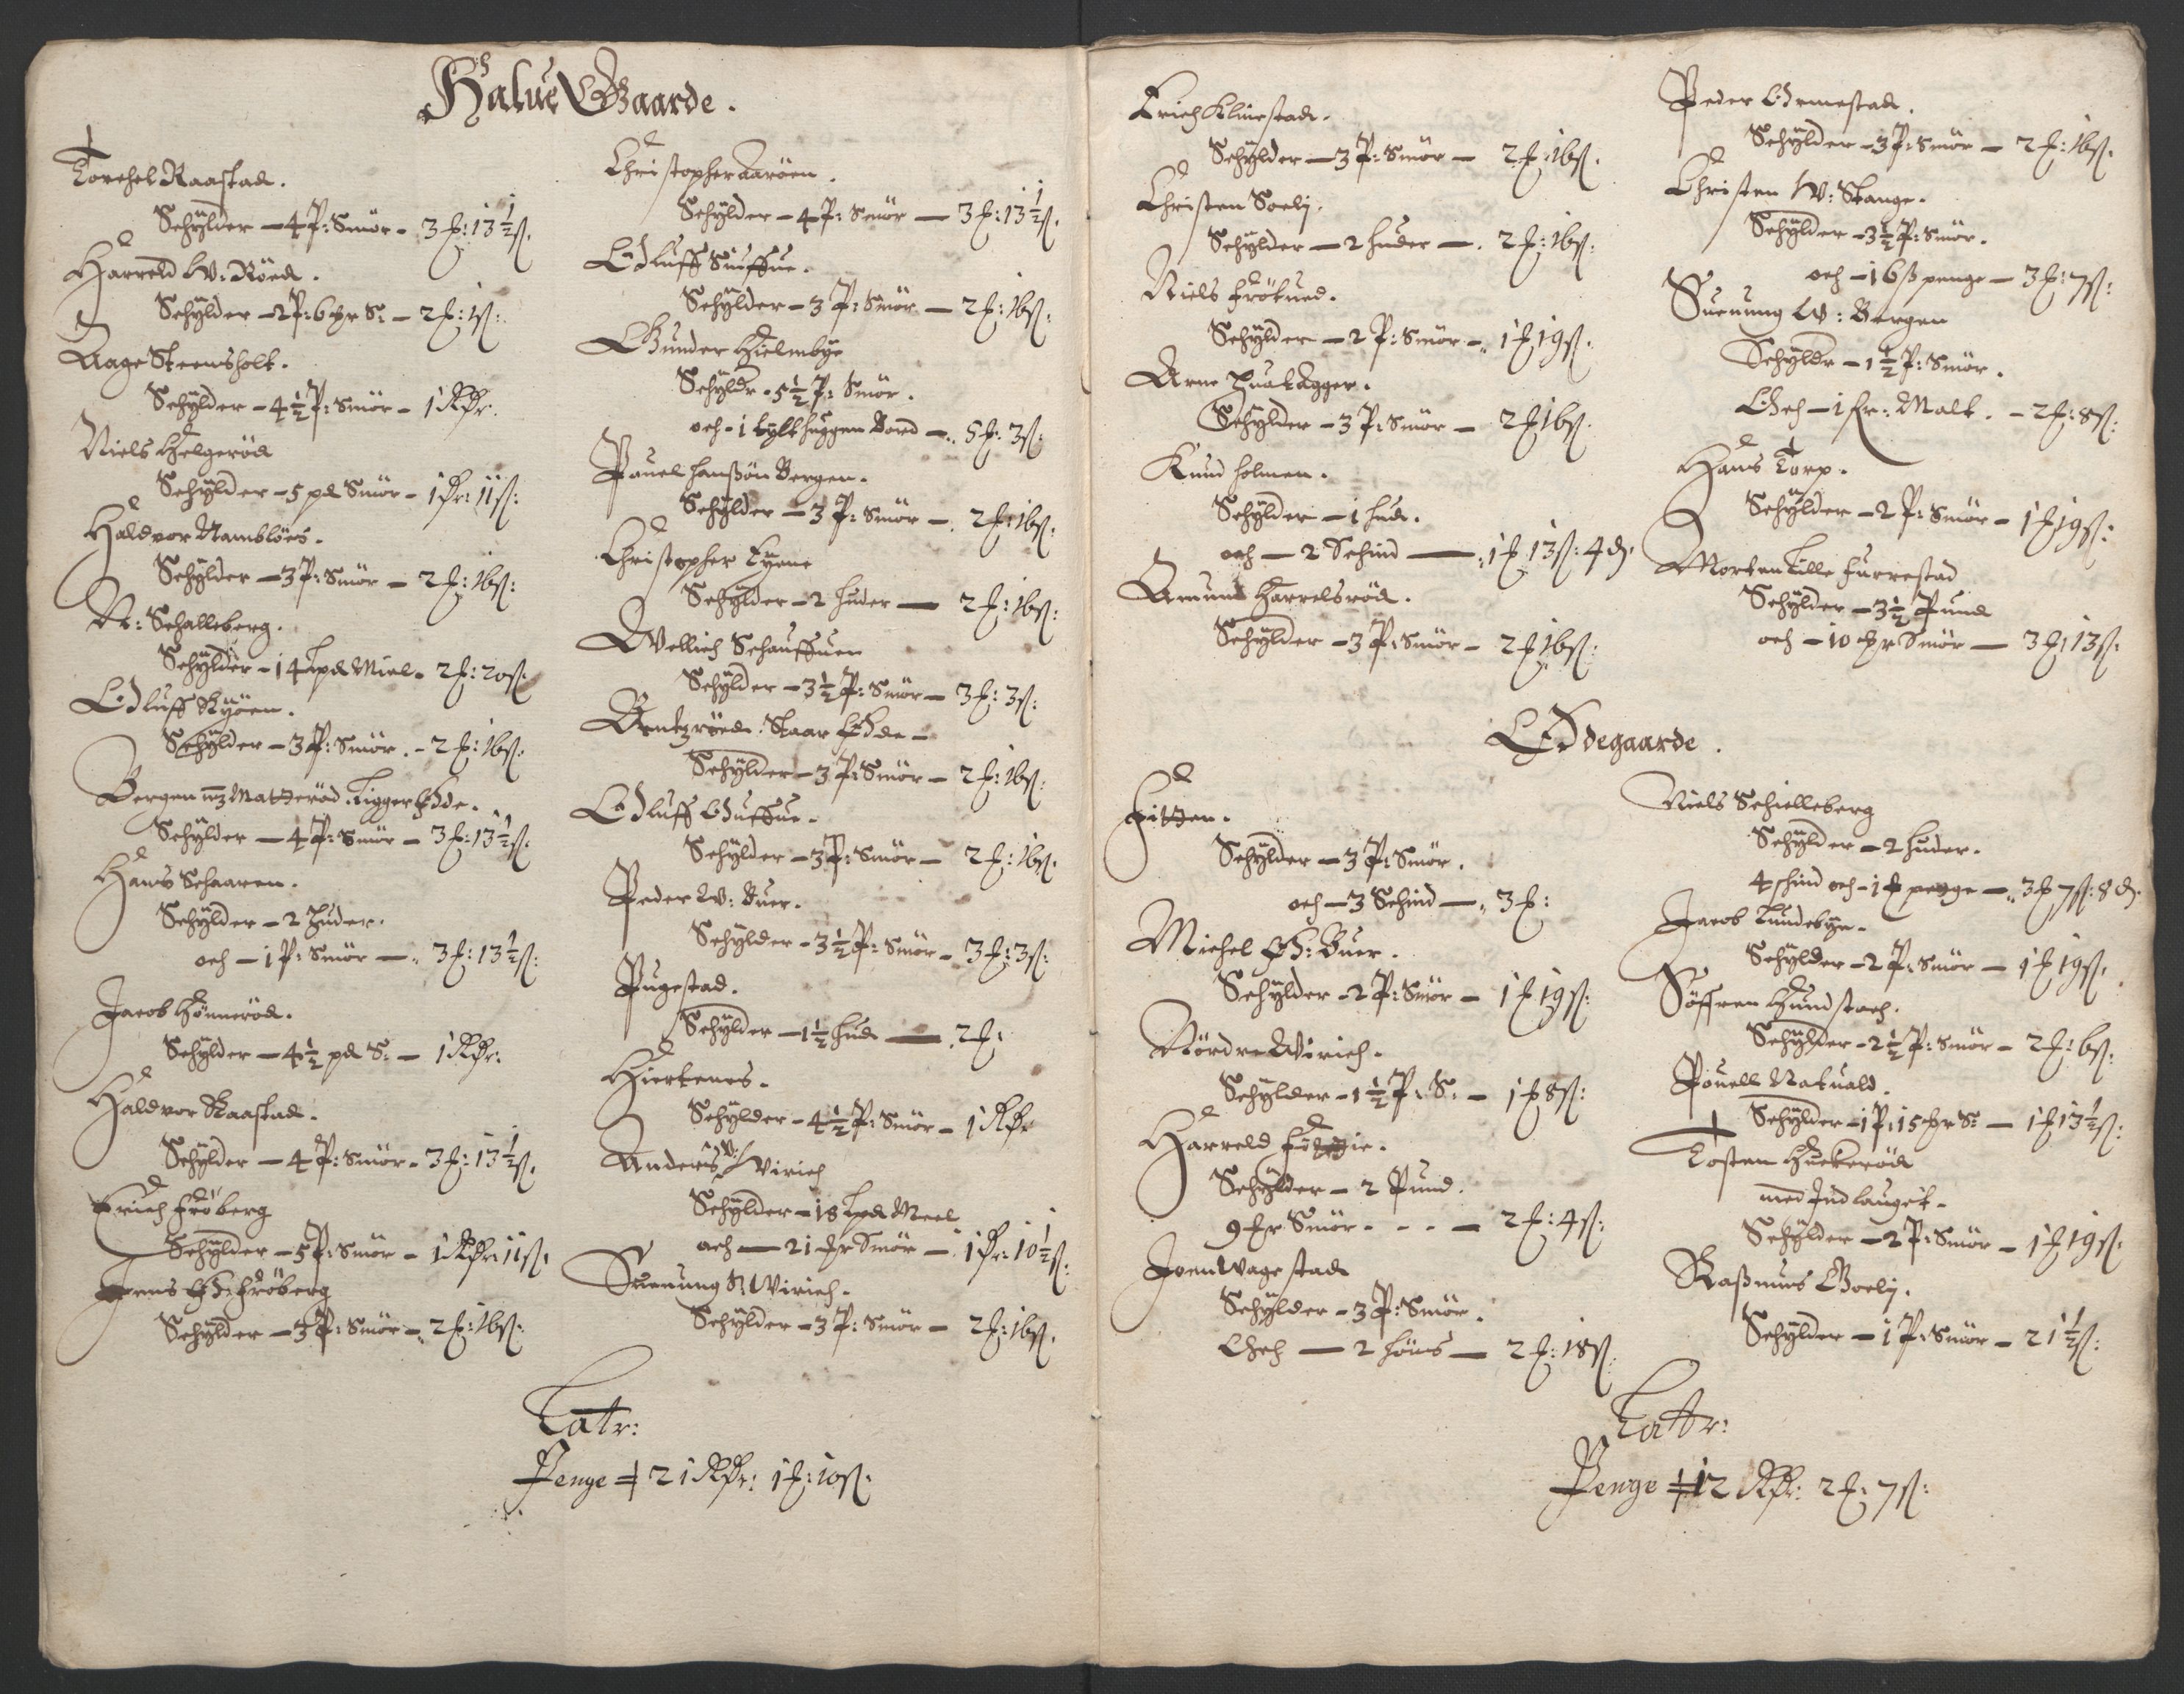 Halue Gaarde.
Torchel Raastad.
Schylder – 4 P: Smör – 3 £: 13½ ß.
Harreld W: Röed.
Schylder – 2 P: 6 mr S: – 2 £: 1 ß:
Aage Steensholt.
Schylder – 4½ P: Smör – 1 Rdr.
Niels Helgeröd
Schylder – 5 pd Smör – 1 dr: 11 ß:
Haldvor Ramblöes.
Schylder – 3 P: Smör – 2 £: 16 ß:
N: Schalleberg.
Schylder – 14 Lpd Miel – 2 £: 20 ß.
Oluff Ryöen.
Schylder – 3 P: Smör. – 2 £: 16 ß.
Bergen Ligger Öde.
Schylder – 4 P: Smör – 3 £: 13½ ß.
Hans Schaaren.
Schylder – 2 Huder.
och – 1 P: Smör – 3 £: 13½ ß:
Jacob Hönneröd.
Schylder – 4½ pd S: – 1 Rdr:
Haldvor Raastad.
Schylder – 4 P: Smör – 3 £: 13½ ß.
Erich Fröberg
Schylder – 5 P: Smör – 1 Rdr: 11 ß.
Jens Fröberg
Schylder – 3 P: Smör – 2 £: 16 ß:
Christopher Aaröen.
Schylder – 4 P: Smör – 3 £: 13½ ß.
Oluff
Schylder – 3 P: Smör – 2 £: 16 ß:
Gunder Hielmbye
Schyldr – 5½ P: Smör.
och – 1 tylt huggen Bord – 5 £: 3 ß:
Pauel Hanßön Bergen.
Schylder – 3 P: Smör – 2 £: 16 ß:
Christopher
Schylder – 2 Huder – 2 £: 16 ß:
Wellich Schauffuen
Schylder – 3½ P: Smör – 3 £: 3 ß:
Staar Öde –
Schylder – 3 P: Smör – 2 £: 16 ß:
Oluff Guffue.
Schylder – 3 P: Smör – 2 £: 16 ß.
Peder W: Buer.
Schylder – 3½ P: Smör – 3 £: 3 ß:
Pugestad.
Schylder – 1½ Hud – 2 £:
Hiertenes.
Schylder – 4½ P: Smör – 1 Rdr
Anders W: Virich
Schylder – 18 Lpd Meel
och – 21 mr Smör – 1 dr: 10½ ß:
Suenung N: Wirich.
Schylder – 3 P: Smör – 2 £: 16 ß.
Latr:
Penge 21 Rdr: 1 £: 10 ß:
Erich Klinestad.
Schylder – 3 P: Smör – 2 £: 16 ß.
Christen Soelj.
Schylder – 2 Huder – 2 £: 16 ß:
Niels Frötued.
Schylder – 2 P: Smör – 1 £ 19 ß.
Arne Huatagger.
Schylder – 3 P: Smör – 2 £ 16 ß:
Knud Holmen.
Schylder – 1 Hud.
och – 2 Schind – 1 £ 13 ß: 4 d.
Amund Harrelsröd.
Schylder – 3 P: Smör – 2 £ 16 ß:
Peder Gremestad.
Schylder – 3 P: Smör – 2 £: 16 ß.
Christen W: Stange.
Schylder – 3½ P: Smör.
och – 16 ß penge – 3 £: 7 ß:
Suenung W: Bergen
Schyldr – 1½ P: Smör.
Och – 1 Malt. – 2 £: 8 ß:
Hans Torp.
Schylder – 2 P: Smör – 1 £ 19 ß:
Morten Lille Furrestad
Schylder – 3½ Pund
och – 10 mr Smör – 3 £: 13 ß.
Ödegaarde.
Fitzen.
Schylder – 3 P: Smör.
och – 3 Schind – 3 £:
Michel Buer.
Schylder – 2 P: Smör – 1 £ 19 ß:
Nördre Wirich.
Schylder – 1½ P: S: – 1 £ 8 ß:
Harreld
Schylder – 2 Pund.
9 mr Smör – 2 £: 4 ß:
Joen Wagestad
Schylder – 3 P: Smör.
Och – 2 Höns – 2 £: 18 ß.
Niels Schielleberg
Schylder – 2 Huder.
4 schind och – 1 £ penge – 3 £ 7 ß: 8 d.
Jacob Lundebye.
Schylder – 2 P: Smör – 1 £ 19 ß.
Söffren Hundstoch.
Schylder – 2½ P: Smör – 2 £: 6 ß:
Pouell Natuald.
Schylder – 1 P: 15 mr S: – 1 £ 13½ ß:
Tosten Huekeröd
med Indlauget.
Schylder – 2 P: Smör – 1 £ 19 ß.
Raßmus Goelj.
Schylder – 1 P: Smör – 21½ ß:
Latr:
Penge 12 Rdr: 2 £: 7 ß: